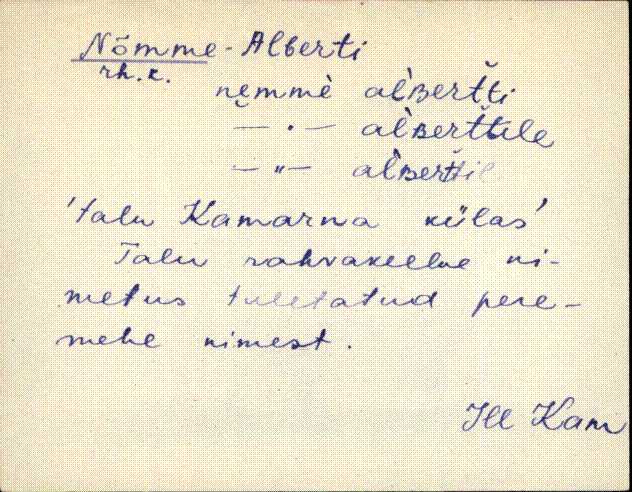 Nõmme-Alberti
rh.k.
nemmè al̀ʙert̆ti
— . — al̀ʙert̆tile
— " — al̀ʙert̆til
'talu Kamarna külas'
Talu rahvakeelne ni-
metus tuletatud pere-
mehe nimest.
Jll Kam